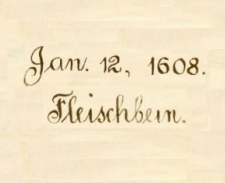 Jan. 12, 1608.
Fleischbein.